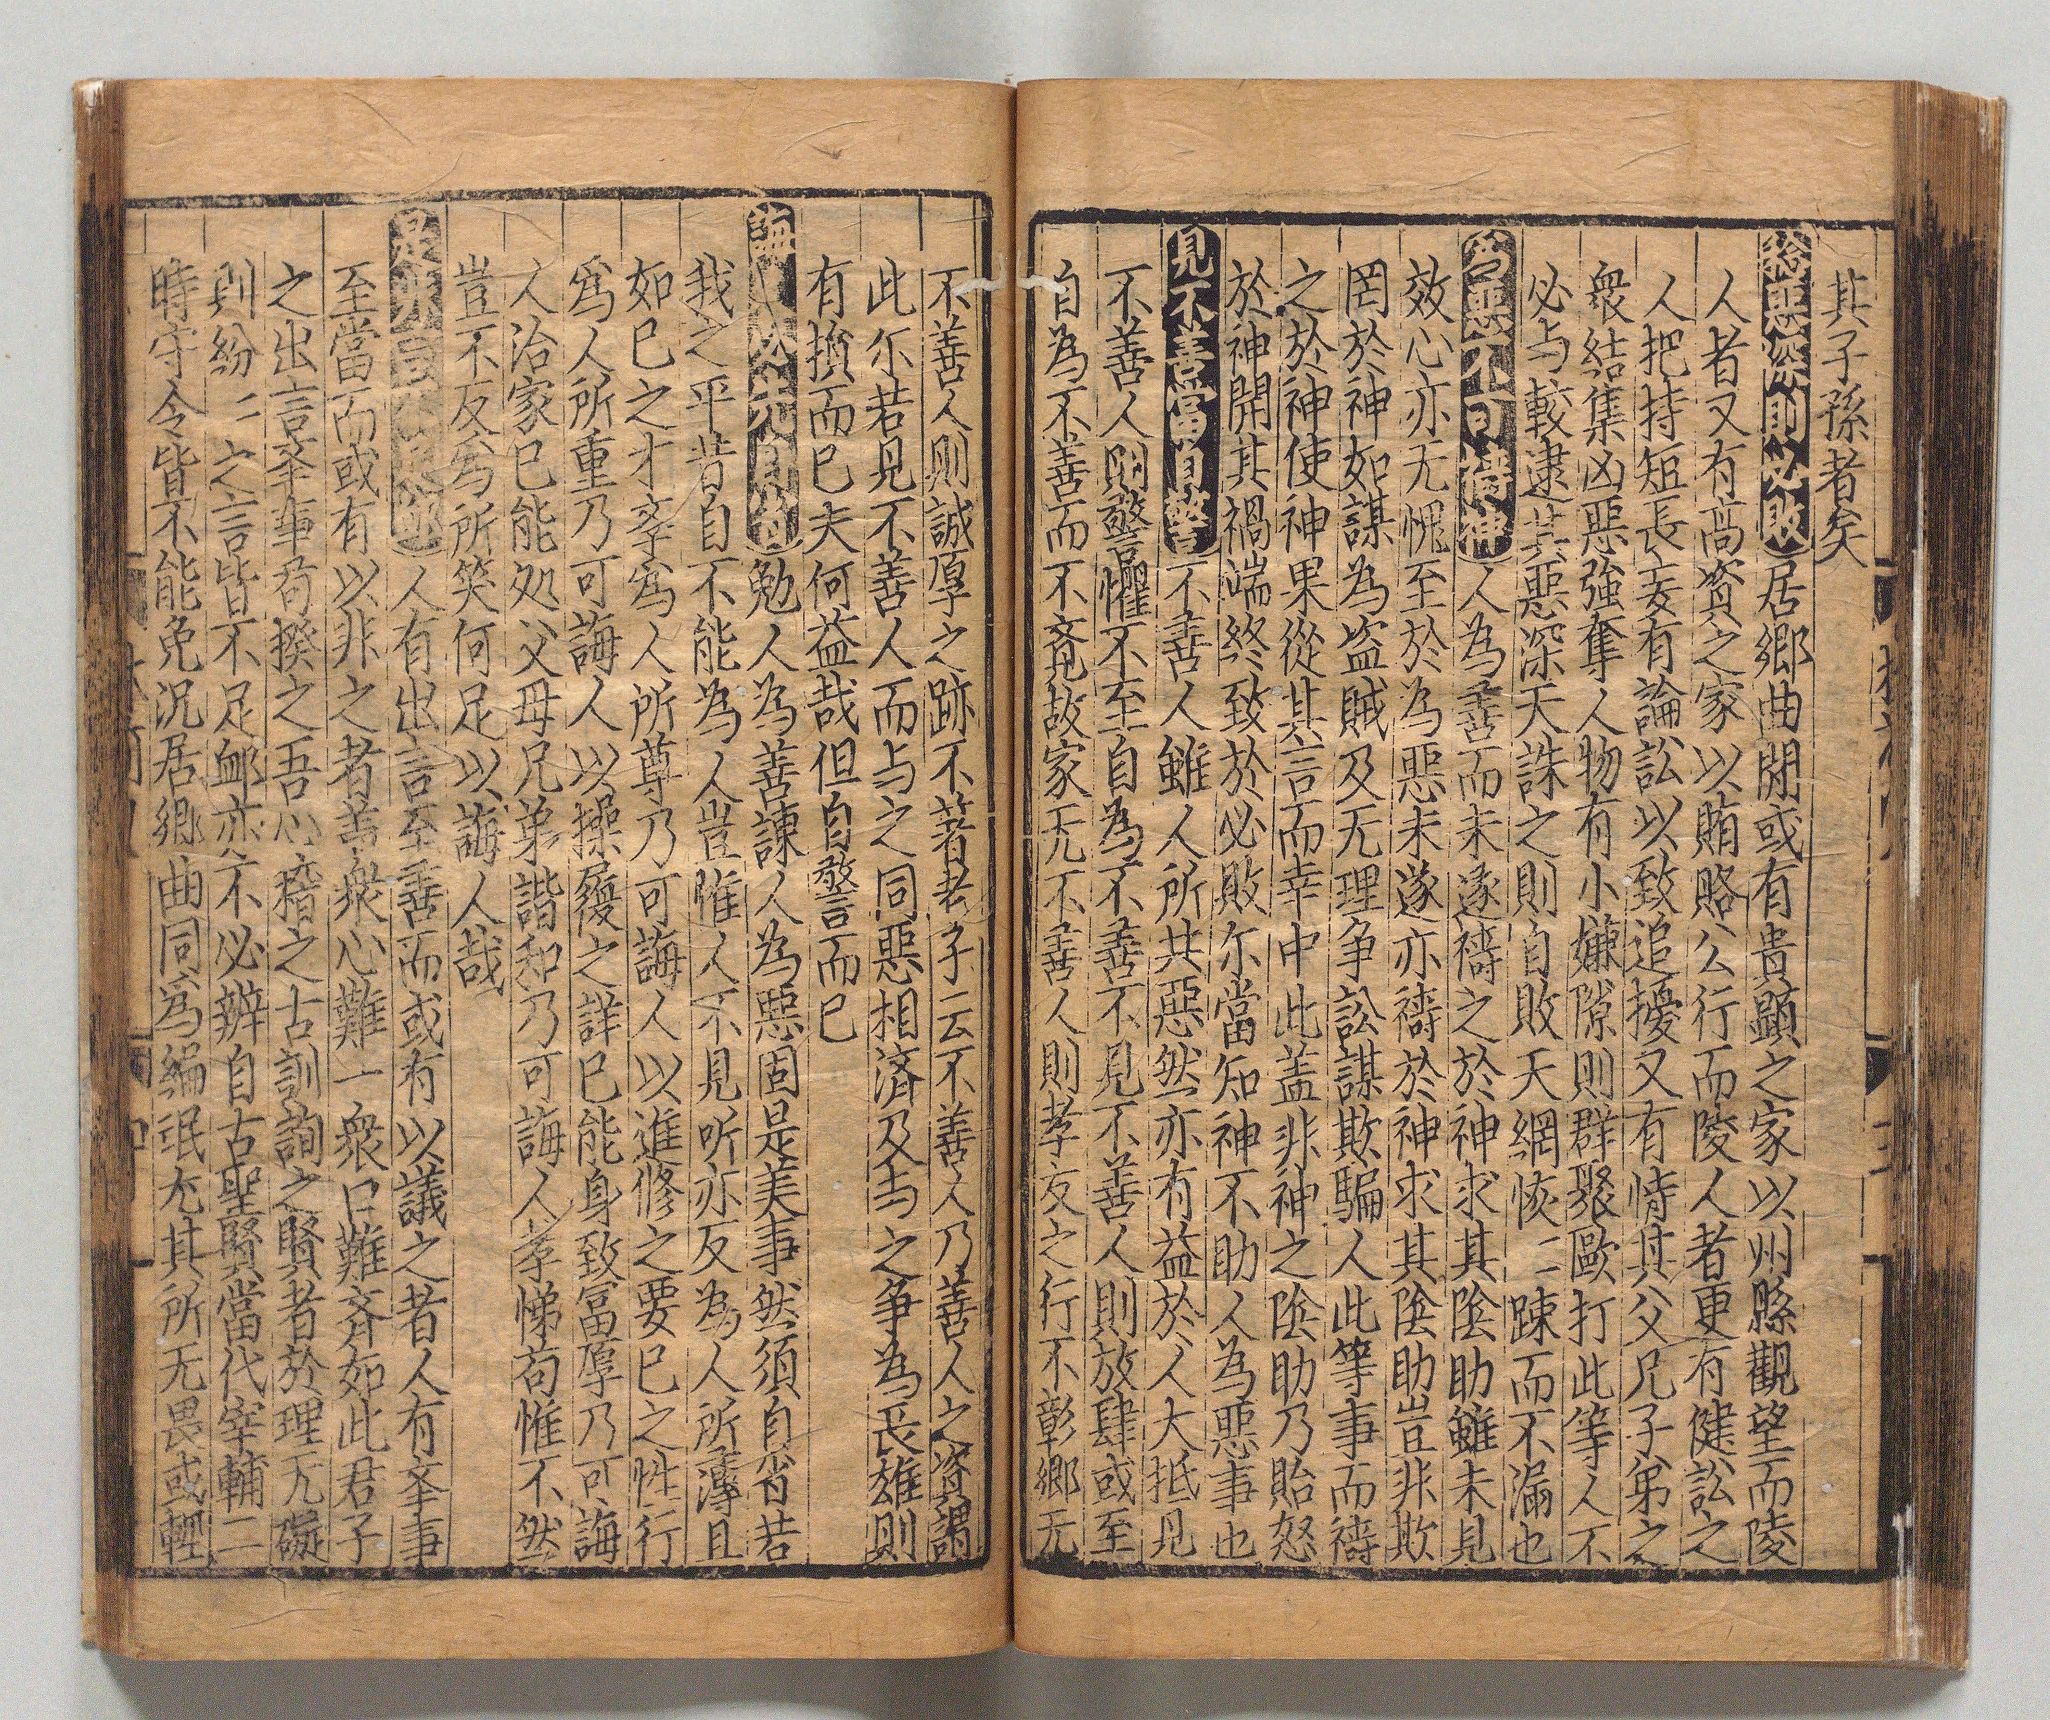 其子孫者矣
稔惡深則必敗居鄉曲間或有貴顯之家以州縣觀望而陵
人者又有高資之家以賄賂公行而陵人者更有健訟之
人把持短長妄有論訟以致追擾又有恃其父兄子弟之
衆結集凶惡強奪人物有小嫌隙則群聚歐打此等人不
必与較逮其惡深天誅之則自敗天網恢〻踈而不漏也
惡不可禱神人為善而未遂禱之於神求其陰助雖未見
效心亦无愧至於為惡未遂亦禱於神求其陰助豈非欺
罔於神如謀為盗賊及无理争訟謀欺騙人此等事而禱
之於神使神果從其言而幸中此盖非神之陰助乃貽怒
於神開其禍端終致於必敗尔當知神不助人為惡事也
見不善當自警不善人雖人所共惡然亦有益於人大抵見
不善人則警懼不至自為不善不見不善人則放肆或至
自為不善而不覺故家无不善人則孝友之行不彰鄉无
不善人則誠厚之跡不著老子云不善人乃善人之資謂
此尔若見不善人而与之同惡相済及与之争為長雄則
有損而已夫何益哉但自警而已
誨人必先自省勉人為善諫人為惡固是美事然須自省若
我之平昔自不能為人豈惟人不見听亦反為人所薄且
如已之才孝為人所尊乃可誨人以進修之要已之性行
為人所重乃可誨人以操履之詳已能身致富厚乃可誨
人治家已能処父母兄弟諧和乃可誨人孝悌苟惟不然
豈不反為所笑何足以誨人哉
人有出言至善而或有以議之者人有孪事
至當而或有以非之者盖衆心難一衆口難齐如此君子
之出言孪事苟揆之吾心稽之古訓詢之賢者於理无礙
則紛〻之言皆不足衂亦不必辨自古聖賢當代宰輔二
時守令皆不能免况居鄉曲同為編氓尤其所无畏或輕